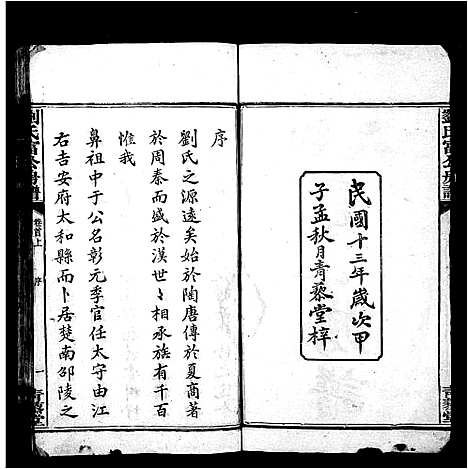 劉氏富公房譜
民國十三年歲次甲
子孟秋月青藜堂梓
序
劉氏之源遠矣始於陶唐傳於夏商著
於周秦而盛於漢世〻相承族有千百
惟我
鼻祖中于公名彰元季官任太守由江
右吉安府太和縣而卜居楚南邵陵之
劉氏富公房譜
卷首上
序
一
青藜堂